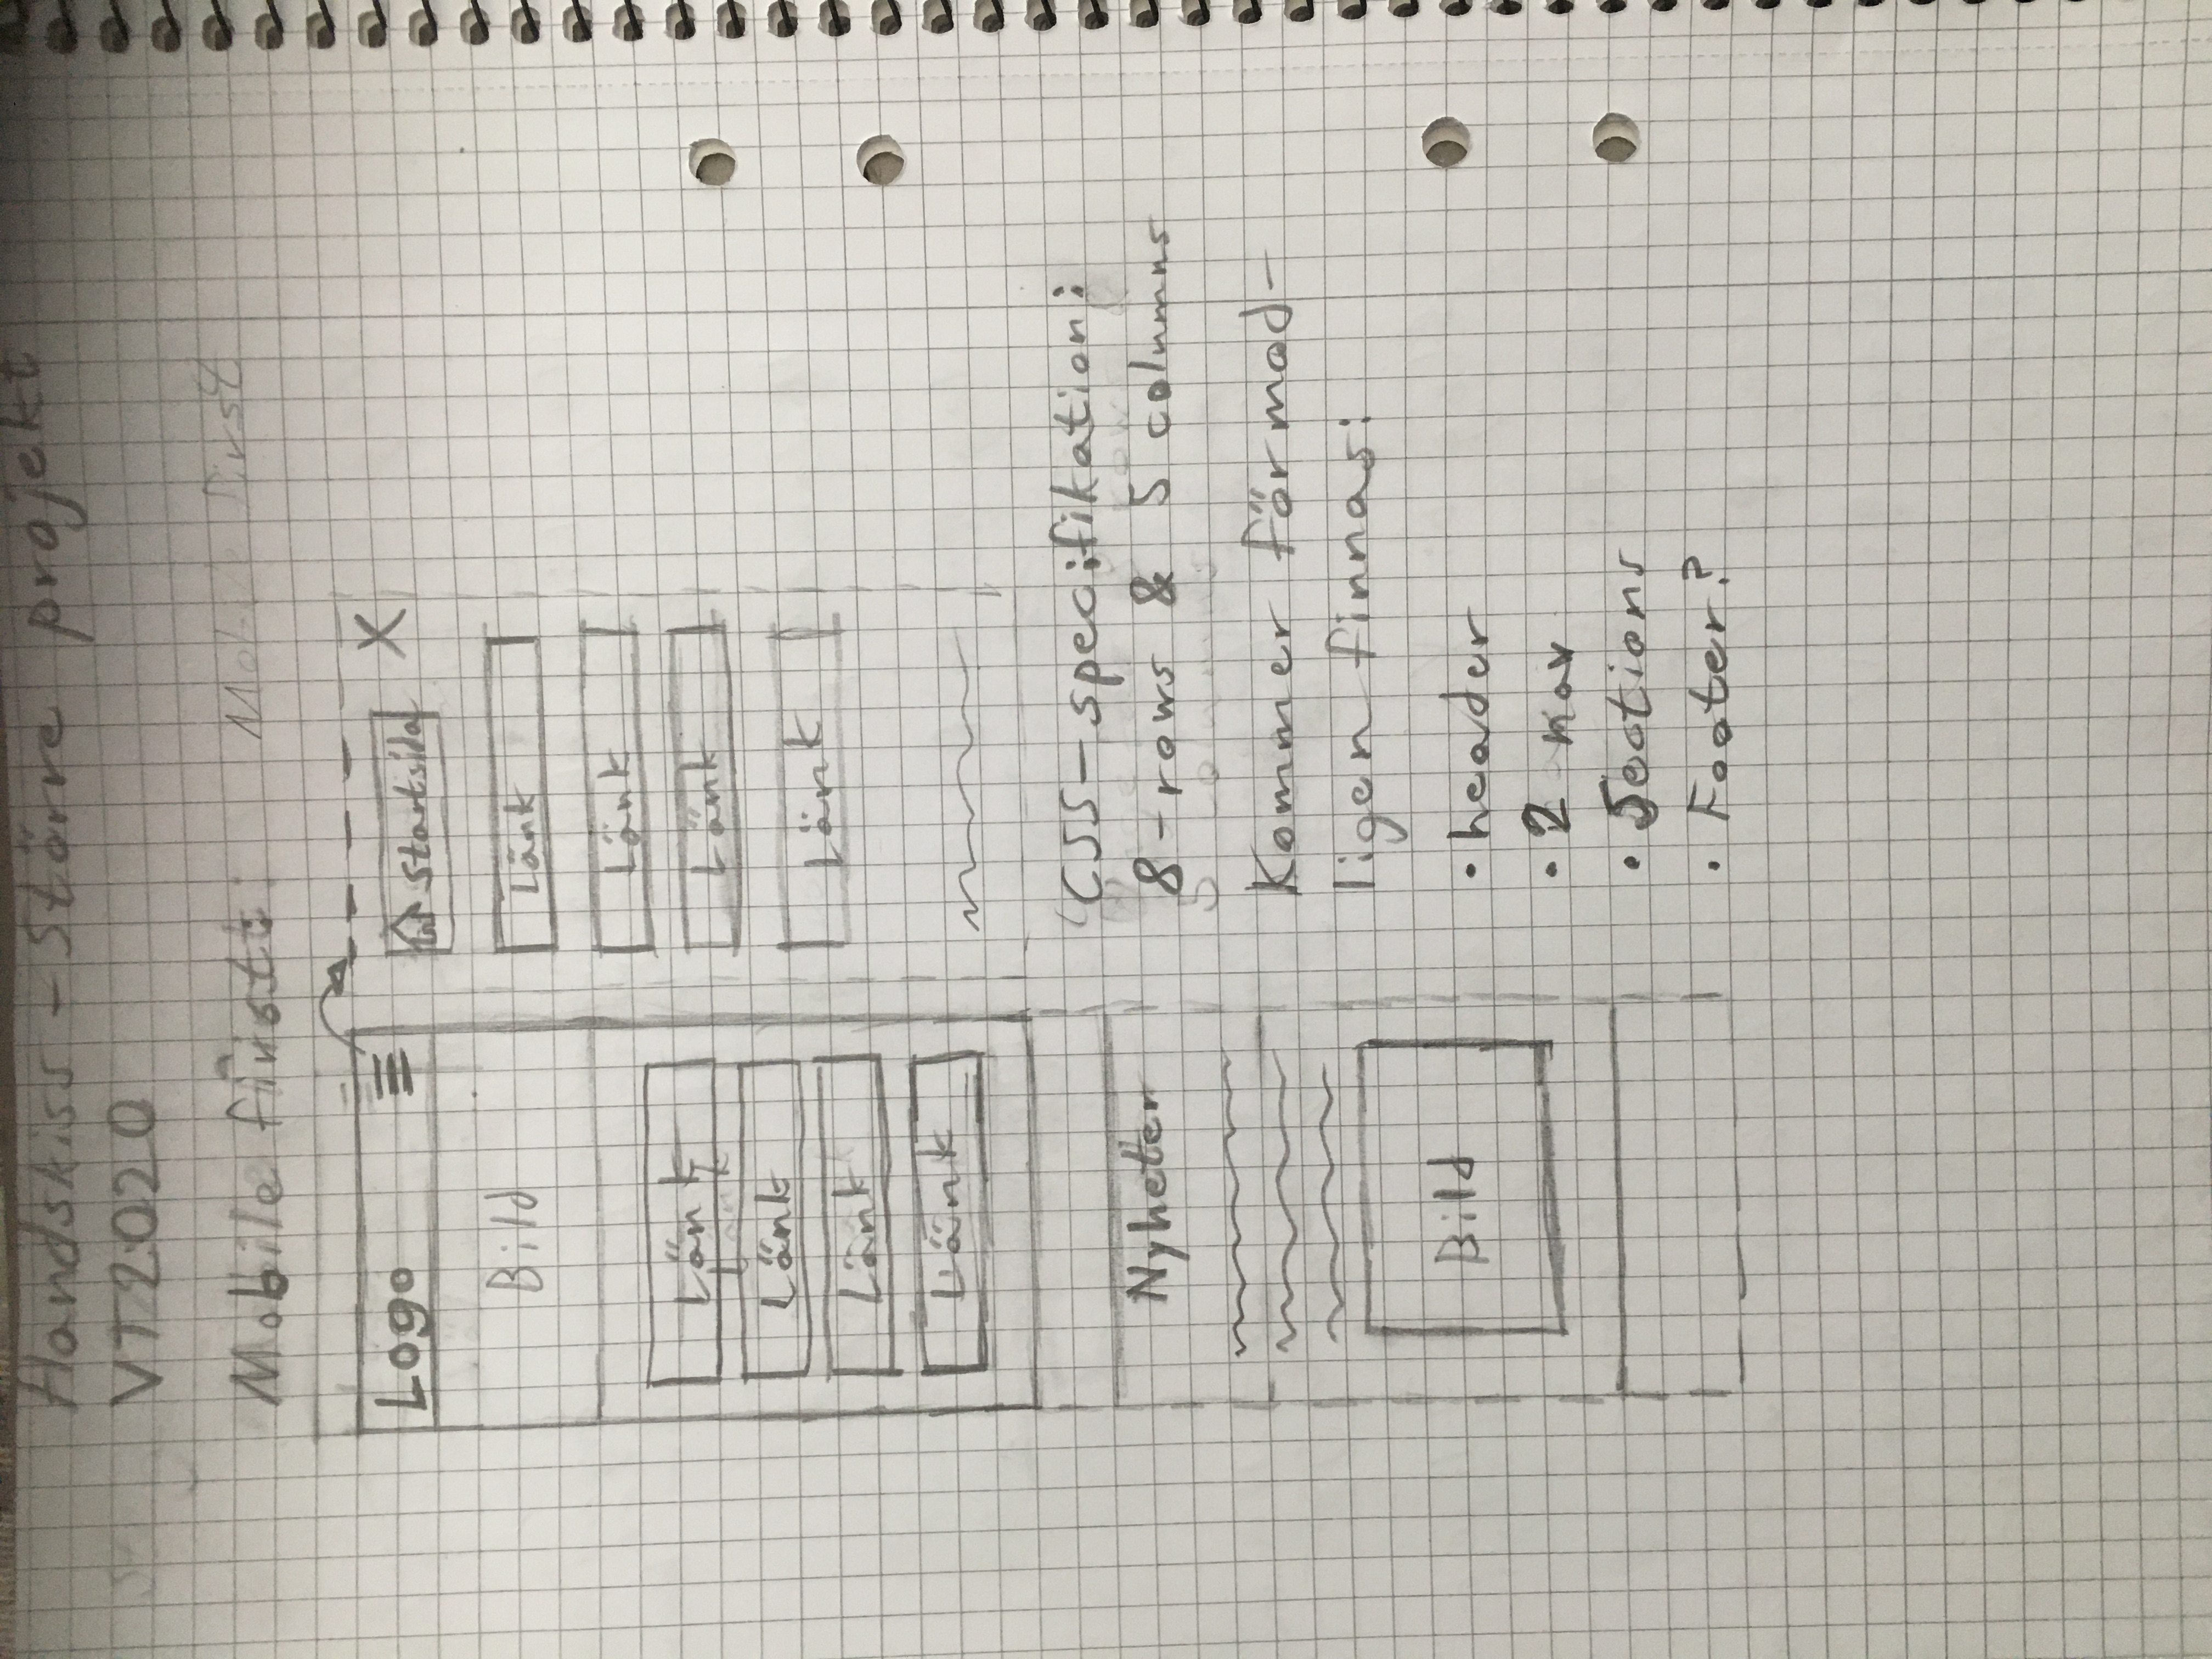 Handskiss - Större projekt
VT2020
Mobile first:
Mobile first
Logo
Bild
Länk
Länk
Länk
Länk
Länk
Nyheter
Bild
X
Startsida
Länk
Länk
Länk
Länk
CSS-specifikation:
8-rows & 5 columns
5 columns
Kommer förmod-
ligen finnas:
• header
• 2 nav
• Sections
• Footer?